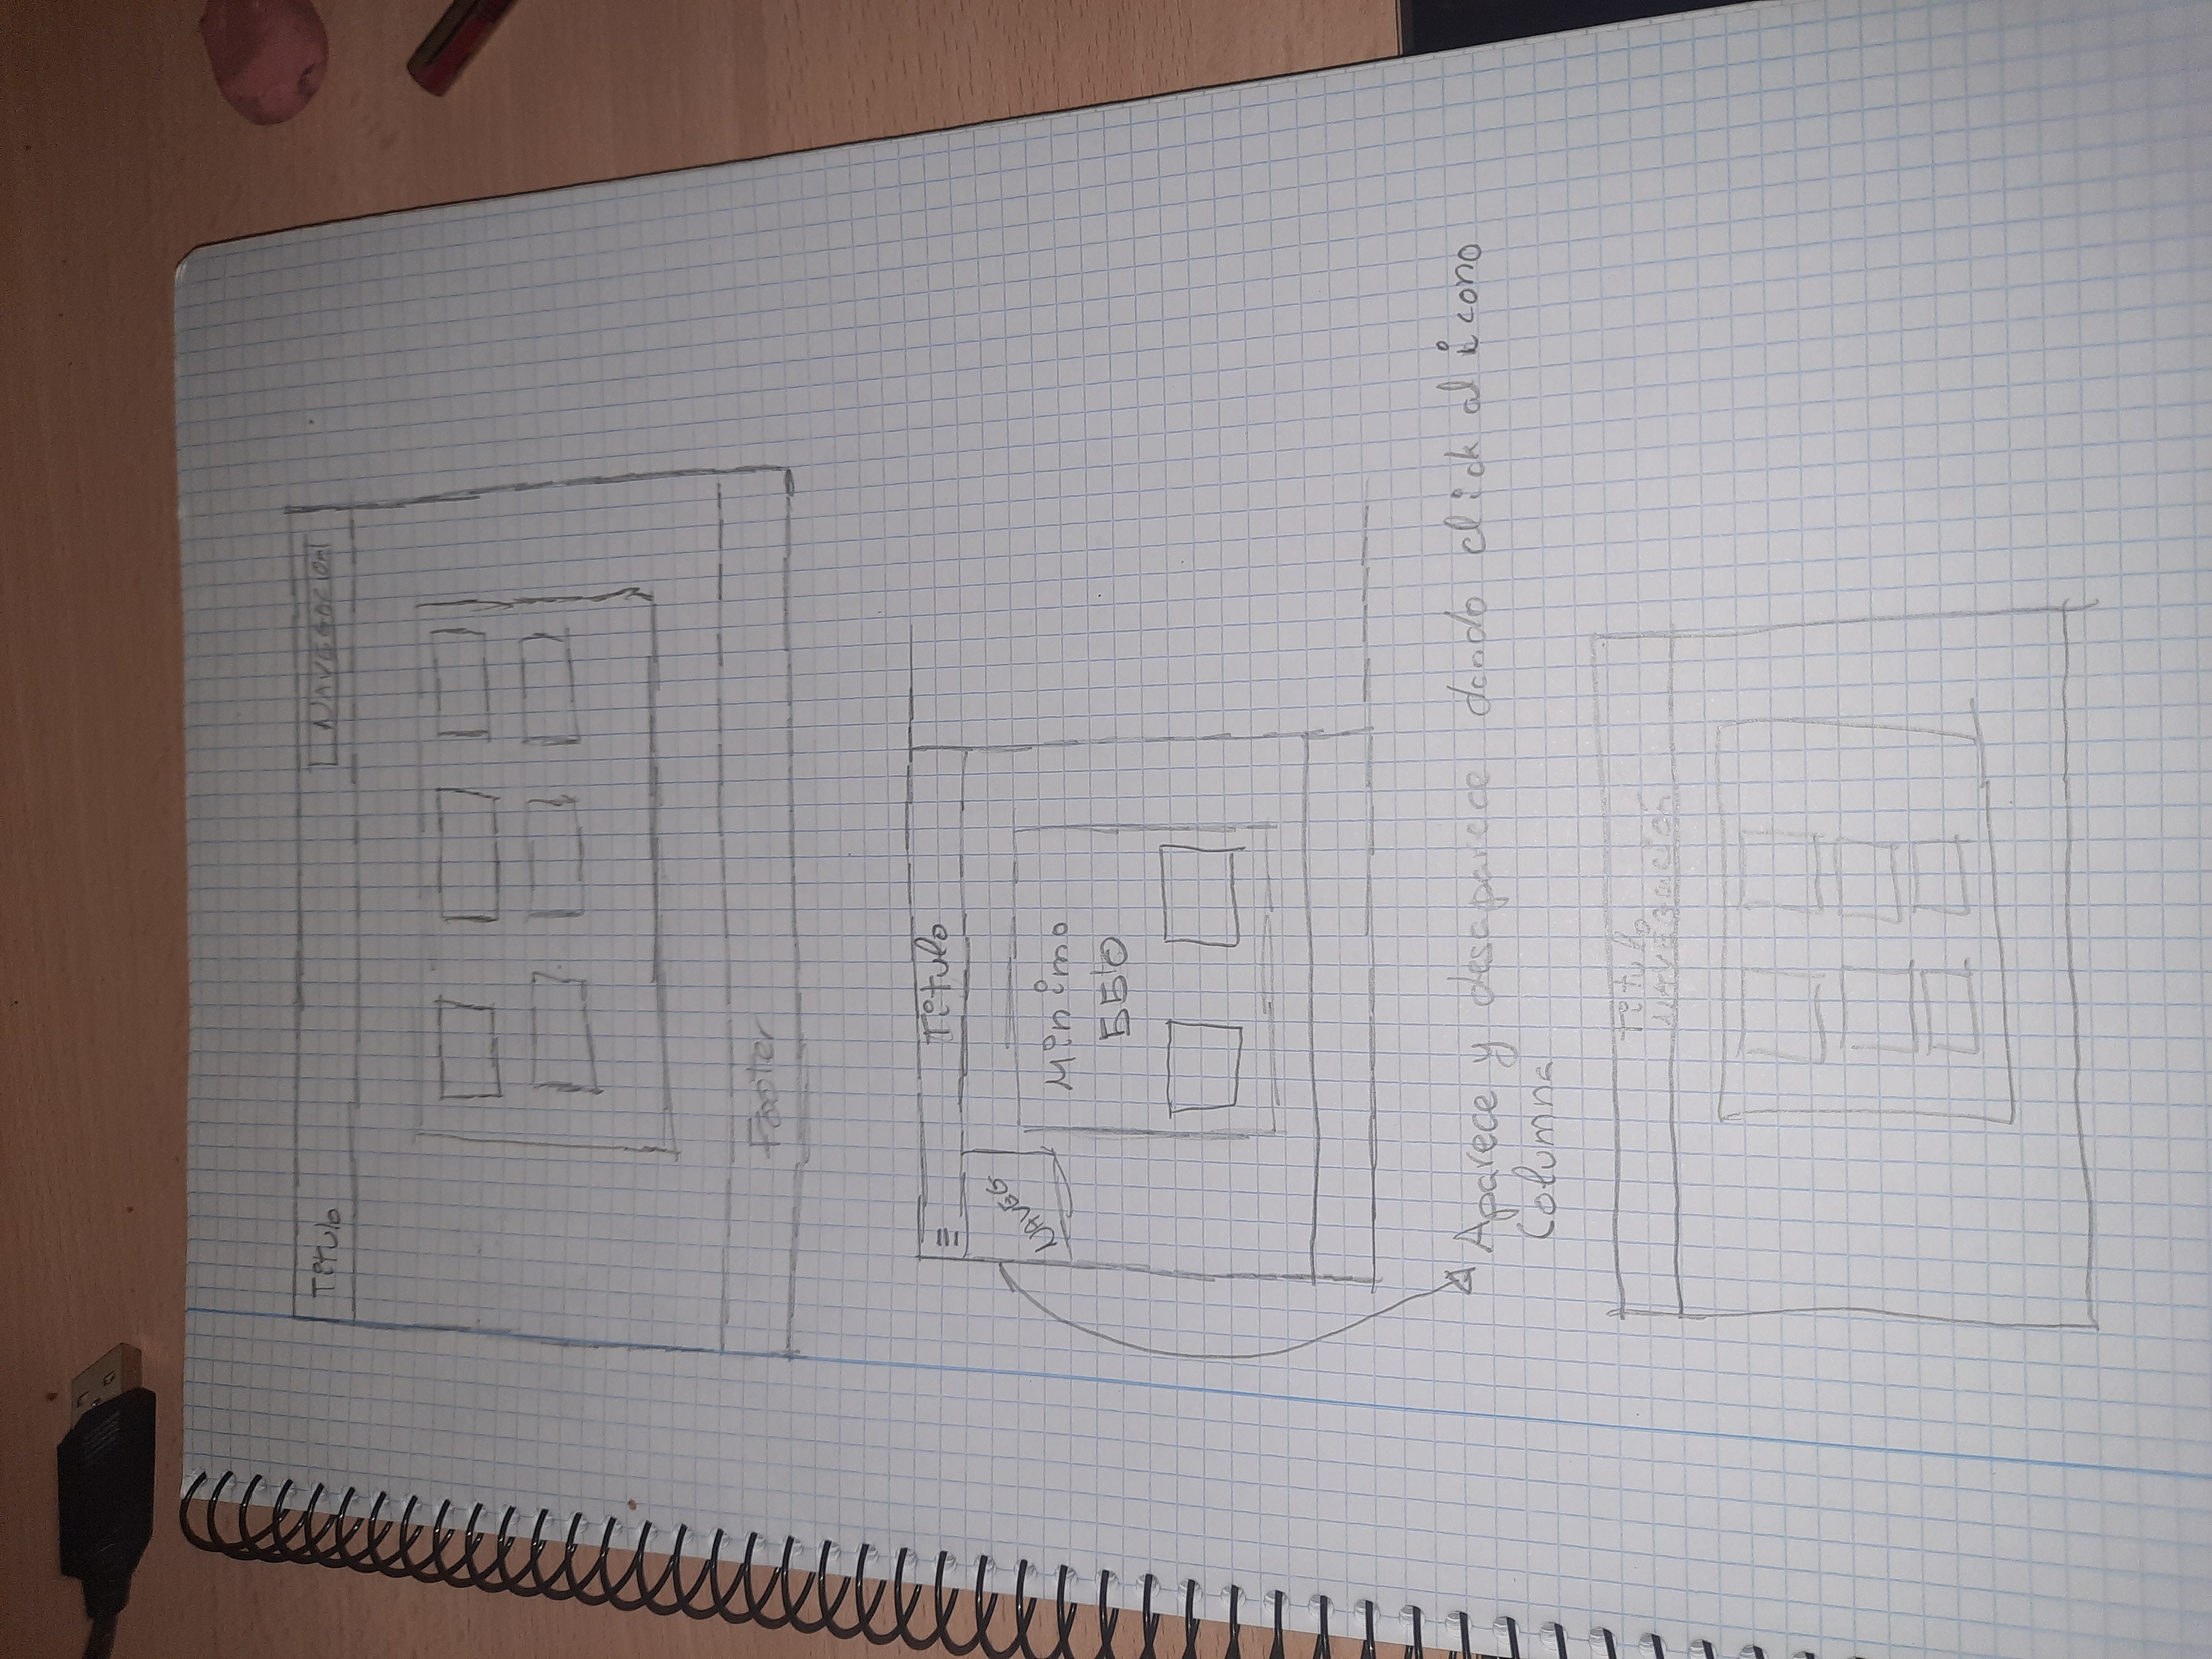 Titulo
NAVEGACION
Footer
Titulo
NAVEG
Minimo
550
Aparece y desaparece dando click al icono
Columna
Titulo
NAVEGación